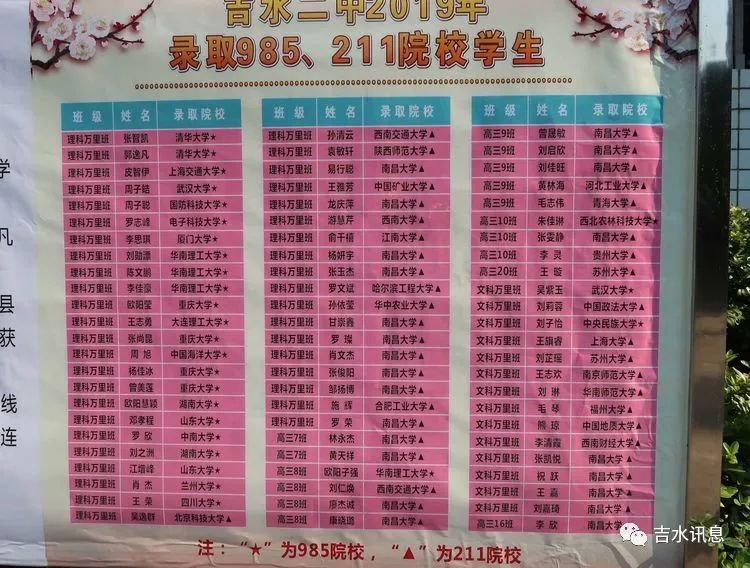 吉水二中2019年
录取985、211院校学生
班级 姓名 录取院校
理科万里班 张智凯 清华大学★
理科万里班 郭逸凡 清华大学★
理科万里班 皮智伊 上海交通大学★
理科万里班 周子皓 武汉大学★
理科万里班 周子聪 国防科技大学★
理科万里班 罗志峰 电子科技大学★
理科万里班 李思琪 厦门大学★
理科万里班 刘勋漂 华南理工大学★
理科万里班 陈文鹏 华南理工大学★
理科万里班 李佳豪 华南理工大学★
理科万里班 欧阳莹 重庆大学★
理科万里班 王志勇 大连理工大学★
理科万里班 张尚昆 重庆大学★
理科万里班 周旭 中国海洋大学★
理科万里班 杨佳冰 重庆大学★
理科万里班 曾美莲 重庆大学★
理科万里班 欧阳慧颖 湖南大学★
理科万里班 邓孝程 山东大学★
理科万里班 罗欣 中南大学★
理科万里班 刘之洲 湖南大学★
理科万里班 江增峰 山东大学★
理科万里班 肖杰 兰州大学★
理科万里班 王荣 四川大学★
理科万里班 吴逸群 北京科技大学▲
班级 姓名 录取院校
理科万里班 孙清云 西南交通大学▲
理科万里班 袁敏轩 陕西师范大学▲
理科万里班 易行聪 南昌大学▲
理科万里班 王雅芳 中国矿业大学▲
理科万里班 龙庆萍 南昌大学▲
理科万里班 游慧芹 西南大学▲
理科万里班 俞千禧 江南大学▲
理科万里班 杨妍宇 南昌大学▲
理科万里班 张玉杰 南昌大学▲
理科万里班 罗文斌 哈尔滨工程大学▲
理科万里班 孙依莹 华中农业大学▲
理科万里班 甘崇鑫 南昌大学▲
理科万里班 罗璨 南昌大学▲
理科万里班 肖文杰 南昌大学▲
理科万里班 张俊阳 南昌大学▲
理科万里班 邹扬博 南昌大学▲
理科万里班 施辉 合肥工业大学▲
理科万里班 罗荣 南昌大学▲
高三7班 林永杰 南昌大学▲
高三7班 黄天祥 南昌大学▲
高三8班 欧阳子强 华南理工大学★
高三8班 刘仁焕 西南交通大学▲
高三8班 廖杰诚 南昌大学▲
高三8班 康晓璐 南昌大学▲
班级 姓名 录取院校
高三9班 曾晟敏 南昌大学▲
高三9班 刘启欣 南昌大学▲
高三9班 刘佳旺 南昌大学▲
高三9班 黄林海 河北工业大学▲
高三9班 毛志伟 青海大学▲
高三10班 朱佳琳 西北农林科技大学★
高三10班 张雯静 南昌大学▲
高三10班 李灵 贵州大学▲
高三20班 王璇 苏州大学▲
文科万里班 吴紫玉 武汉大学★
文科万里班 刘莉蓉 中国政法大学▲
文科万里班 刘子怡 中央民族大学★
文科万里班 王旗睿 上海大学▲
文科万里班 刘芷瑶 苏州大学▲
文科万里班 王志欢 南京师范大学▲
文科万里班 刘琳 华南师范大学▲
文科万里班 毛琴 福州大学▲
文科万里班 熊琼 中国地质大学▲
文科万里班 李清霞 西南财经大学▲
文科万里班 张凯悦 南昌大学▲
文科万里班 祝跃 南昌大学▲
文科万里班 王嘉 南昌大学▲
文科万里班 刘嘉琦 南昌大学▲
高三16班 李欣 南昌大学
注：“★”为985院校，“▲”为211院校
学
凡
县
获
线
连
吉水讯息